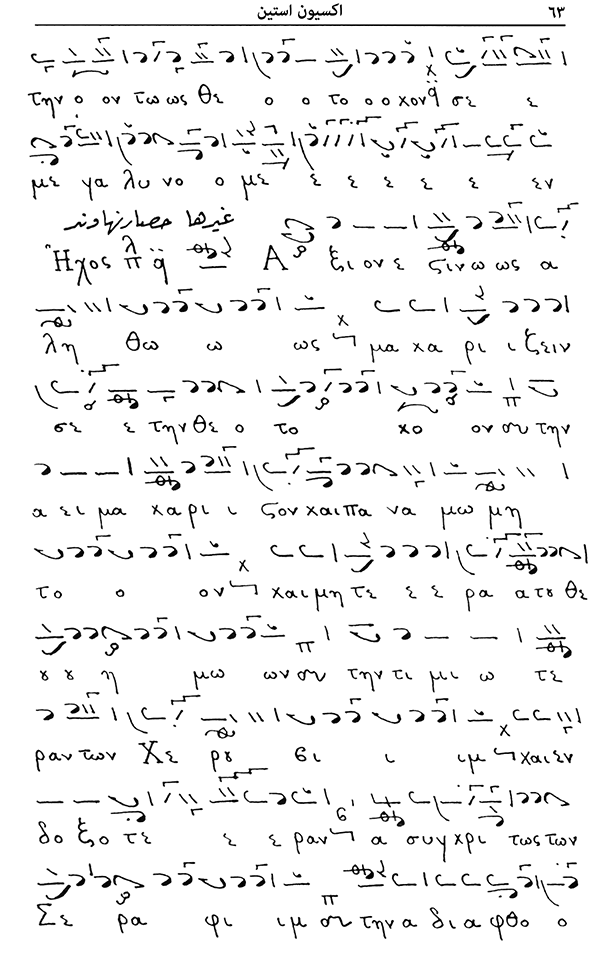 اكسيون استين ٦٣
την ο ον τω ως θε ο ο το ο ο κον σε ε
με γα λυ νο ο με ε ε ε ε ε εν
غيرها حصارنهاوند
Ἦχος λ π ᾳ Α ξι ον ε ϛιν ω ως α
λη θω ω ως μα κα ρι ι ζειν
σε ε την θε ο το κο ον συ την
α ει μα κα ρι ι ϛον και πα να μω μη
το ο ον και μη τε ε ε ρα α τȣ θε
ȣ ȣ η μω ων συ την τι μι ω τε
ραν των Χε ρȣ βι ι ιμ και εν
δο ξο τε ε ε ραν α συγκρι τως των
Σε ρα φι ιμ συ την α δια φθο ο